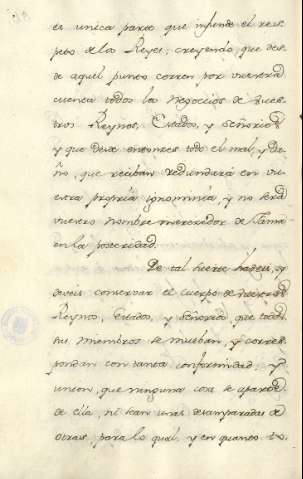 es unica parte que infunde el res-
peto de los Reyes; creyendo que des-
de aquel punto corren por vuestra
cuenta todos los negocios de vues-
tros Reynos, Estados, y Señorios
y que desde entonces todo el mal, y da-
ño, que reciban redundará en vu-
estra propria ignominia, y no será
vuestro nombre merecedor de fama
en la posteridad.
De tal suerte haveis, y
deveis conservar el cuerpo de vuestros
Reynos, Estados, y Señorios que todos
sus miembros se mueban, y corres-
pondan con tanta conformidad, y
union, que ninguna cosa se aparte
de ella, ni sean unas desamparadas de
otras, para lo qual, y en quanto